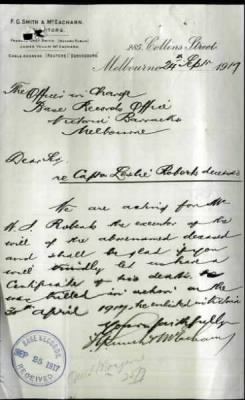 F. G. SMITH & McEACHARN,
285 Collins Street
Melbourne 24th Sept 1917
The Officer in Charge
Base Records Office
Victoria Barracks
Melbourne
Dear Sir
re Captn Leslie Roberts deceased
We are acting for Mr
W. J. Roberts the executor of the
will of the abovenamed deceased
and shall be glad if you
will kindly let us have a
Certificate of his death. He
was killed in action on the
30th April 1917, he enlisted in Victoria
Yours faithfully
BASE RECORDS
SEP 25 1917
RECEIVED